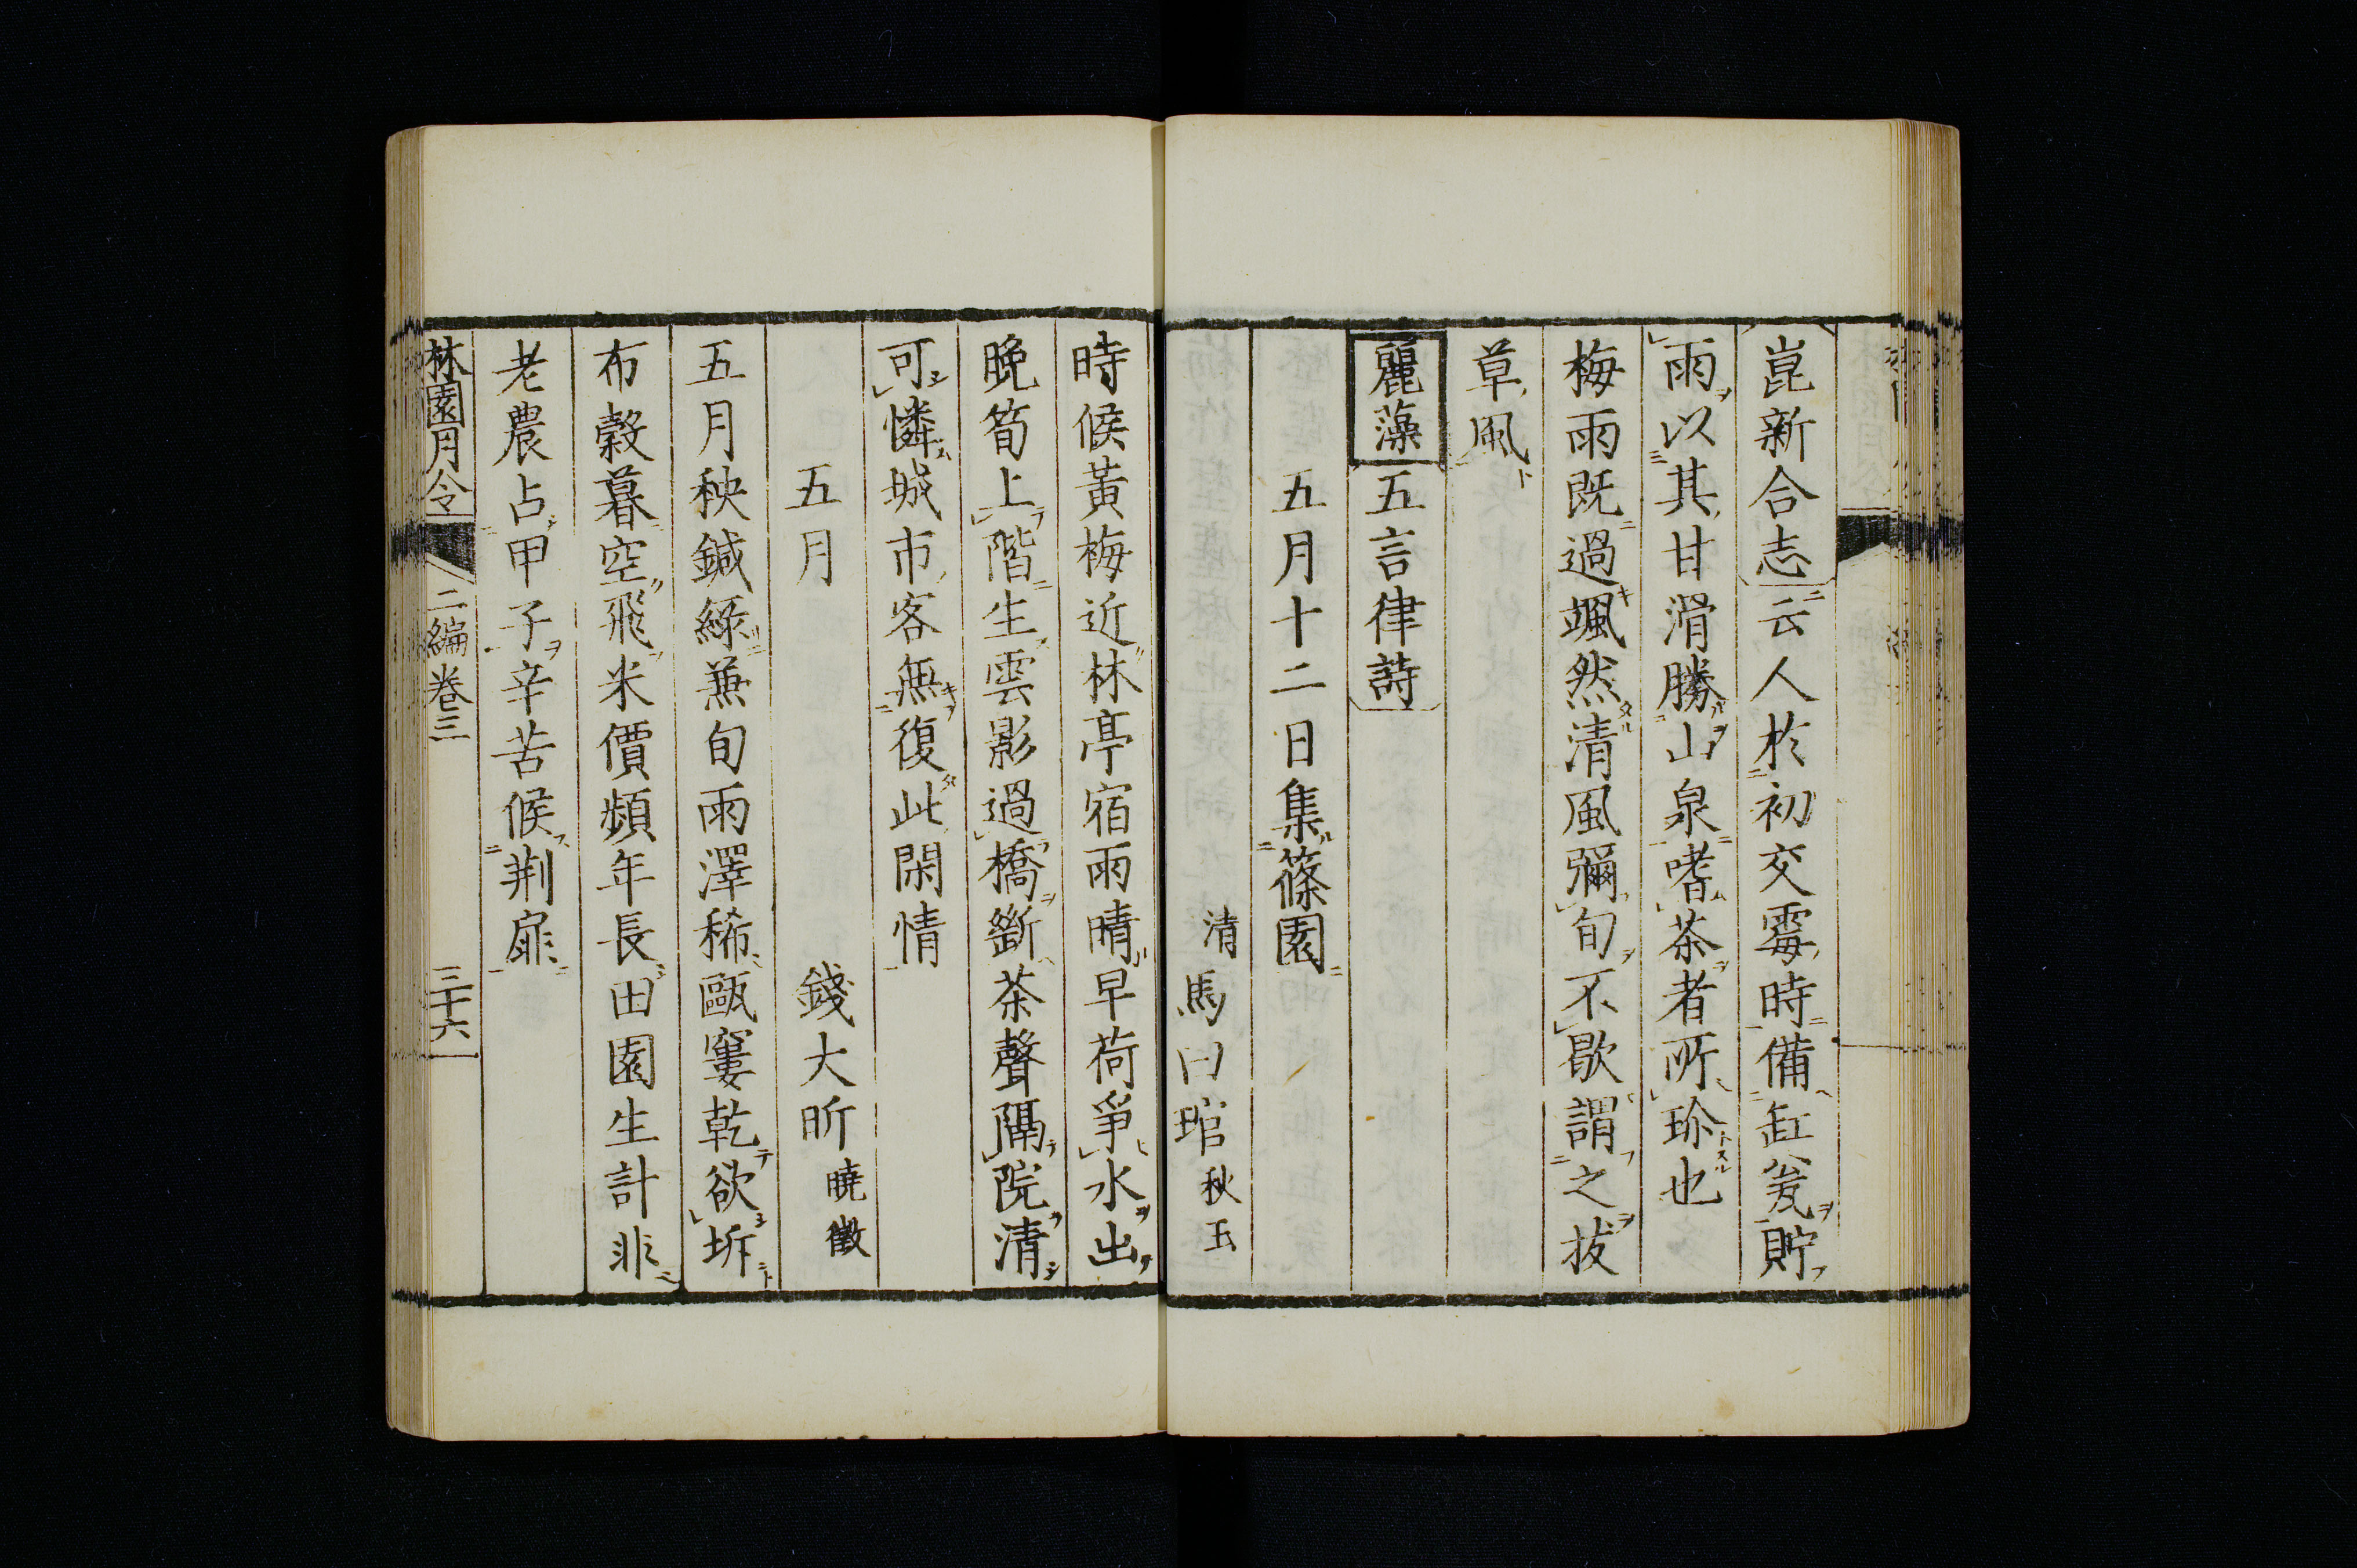 崑新合志云人於初交霉時備缸瓮貯
雨以其甘滑勝山泉嗜茶者所珍也
梅雨既過颯然清風彌旬不歇謂之拔
草風
麗藻 五言律詩
五月十二日集篠園
清 馬曰琯 秋玉
時候黃梅近林亭宿雨晴早荷爭水出
晚筍上階生雲影過橋斷茶聲隔院清
可憐城市客無復此閑情
五月 錢大昕 曉徵
五月秧鍼綠兼旬雨澤稀甌窶乾欲坼
布穀暮空飛米價頻年長田園生計非
老農占甲子辛苦候荆扉
林園月令 二編卷三 三十六